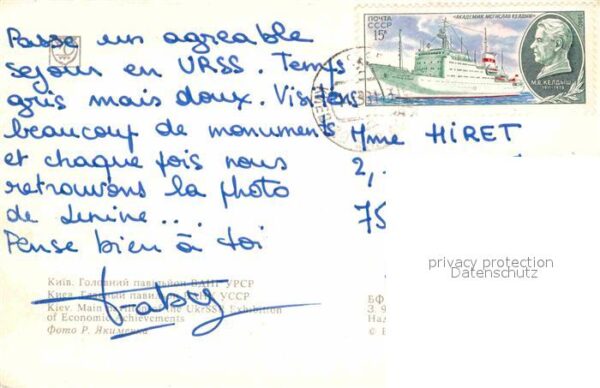 Passe un agréable
sejour en URSS. Temps
gris mais doux. Visitons
beaucoup de monuments
et chaque fois nous
retrouvons la photo
de Lenine...
Pense bien à toi
Gaby
Mme HIRET
2,
75
ПОЧТА
СССР
15к
«АКАДЕМИК МСТИСЛАВ КЕЛДЫШ»
М.В. КЕЛДЫШ
1911-1978
privacy protection
Datenschutz
Київ. Головний павільйон ВДНГ УРСР
Киев. Главный УССР
Kiev. Main the UkrSSR Exhibition
of Economic Achievements
Фото Р. Якименка